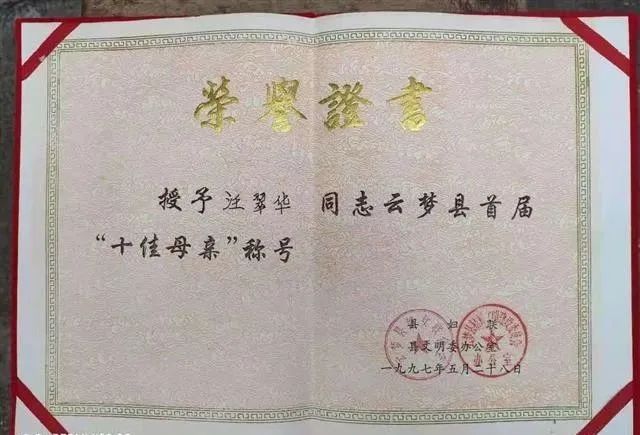 榮譽證書
授予汪翠华 同志云梦县首届
“十佳母亲”称号
县 妇 联
县文明委办公室
一九九七年五月二十八日